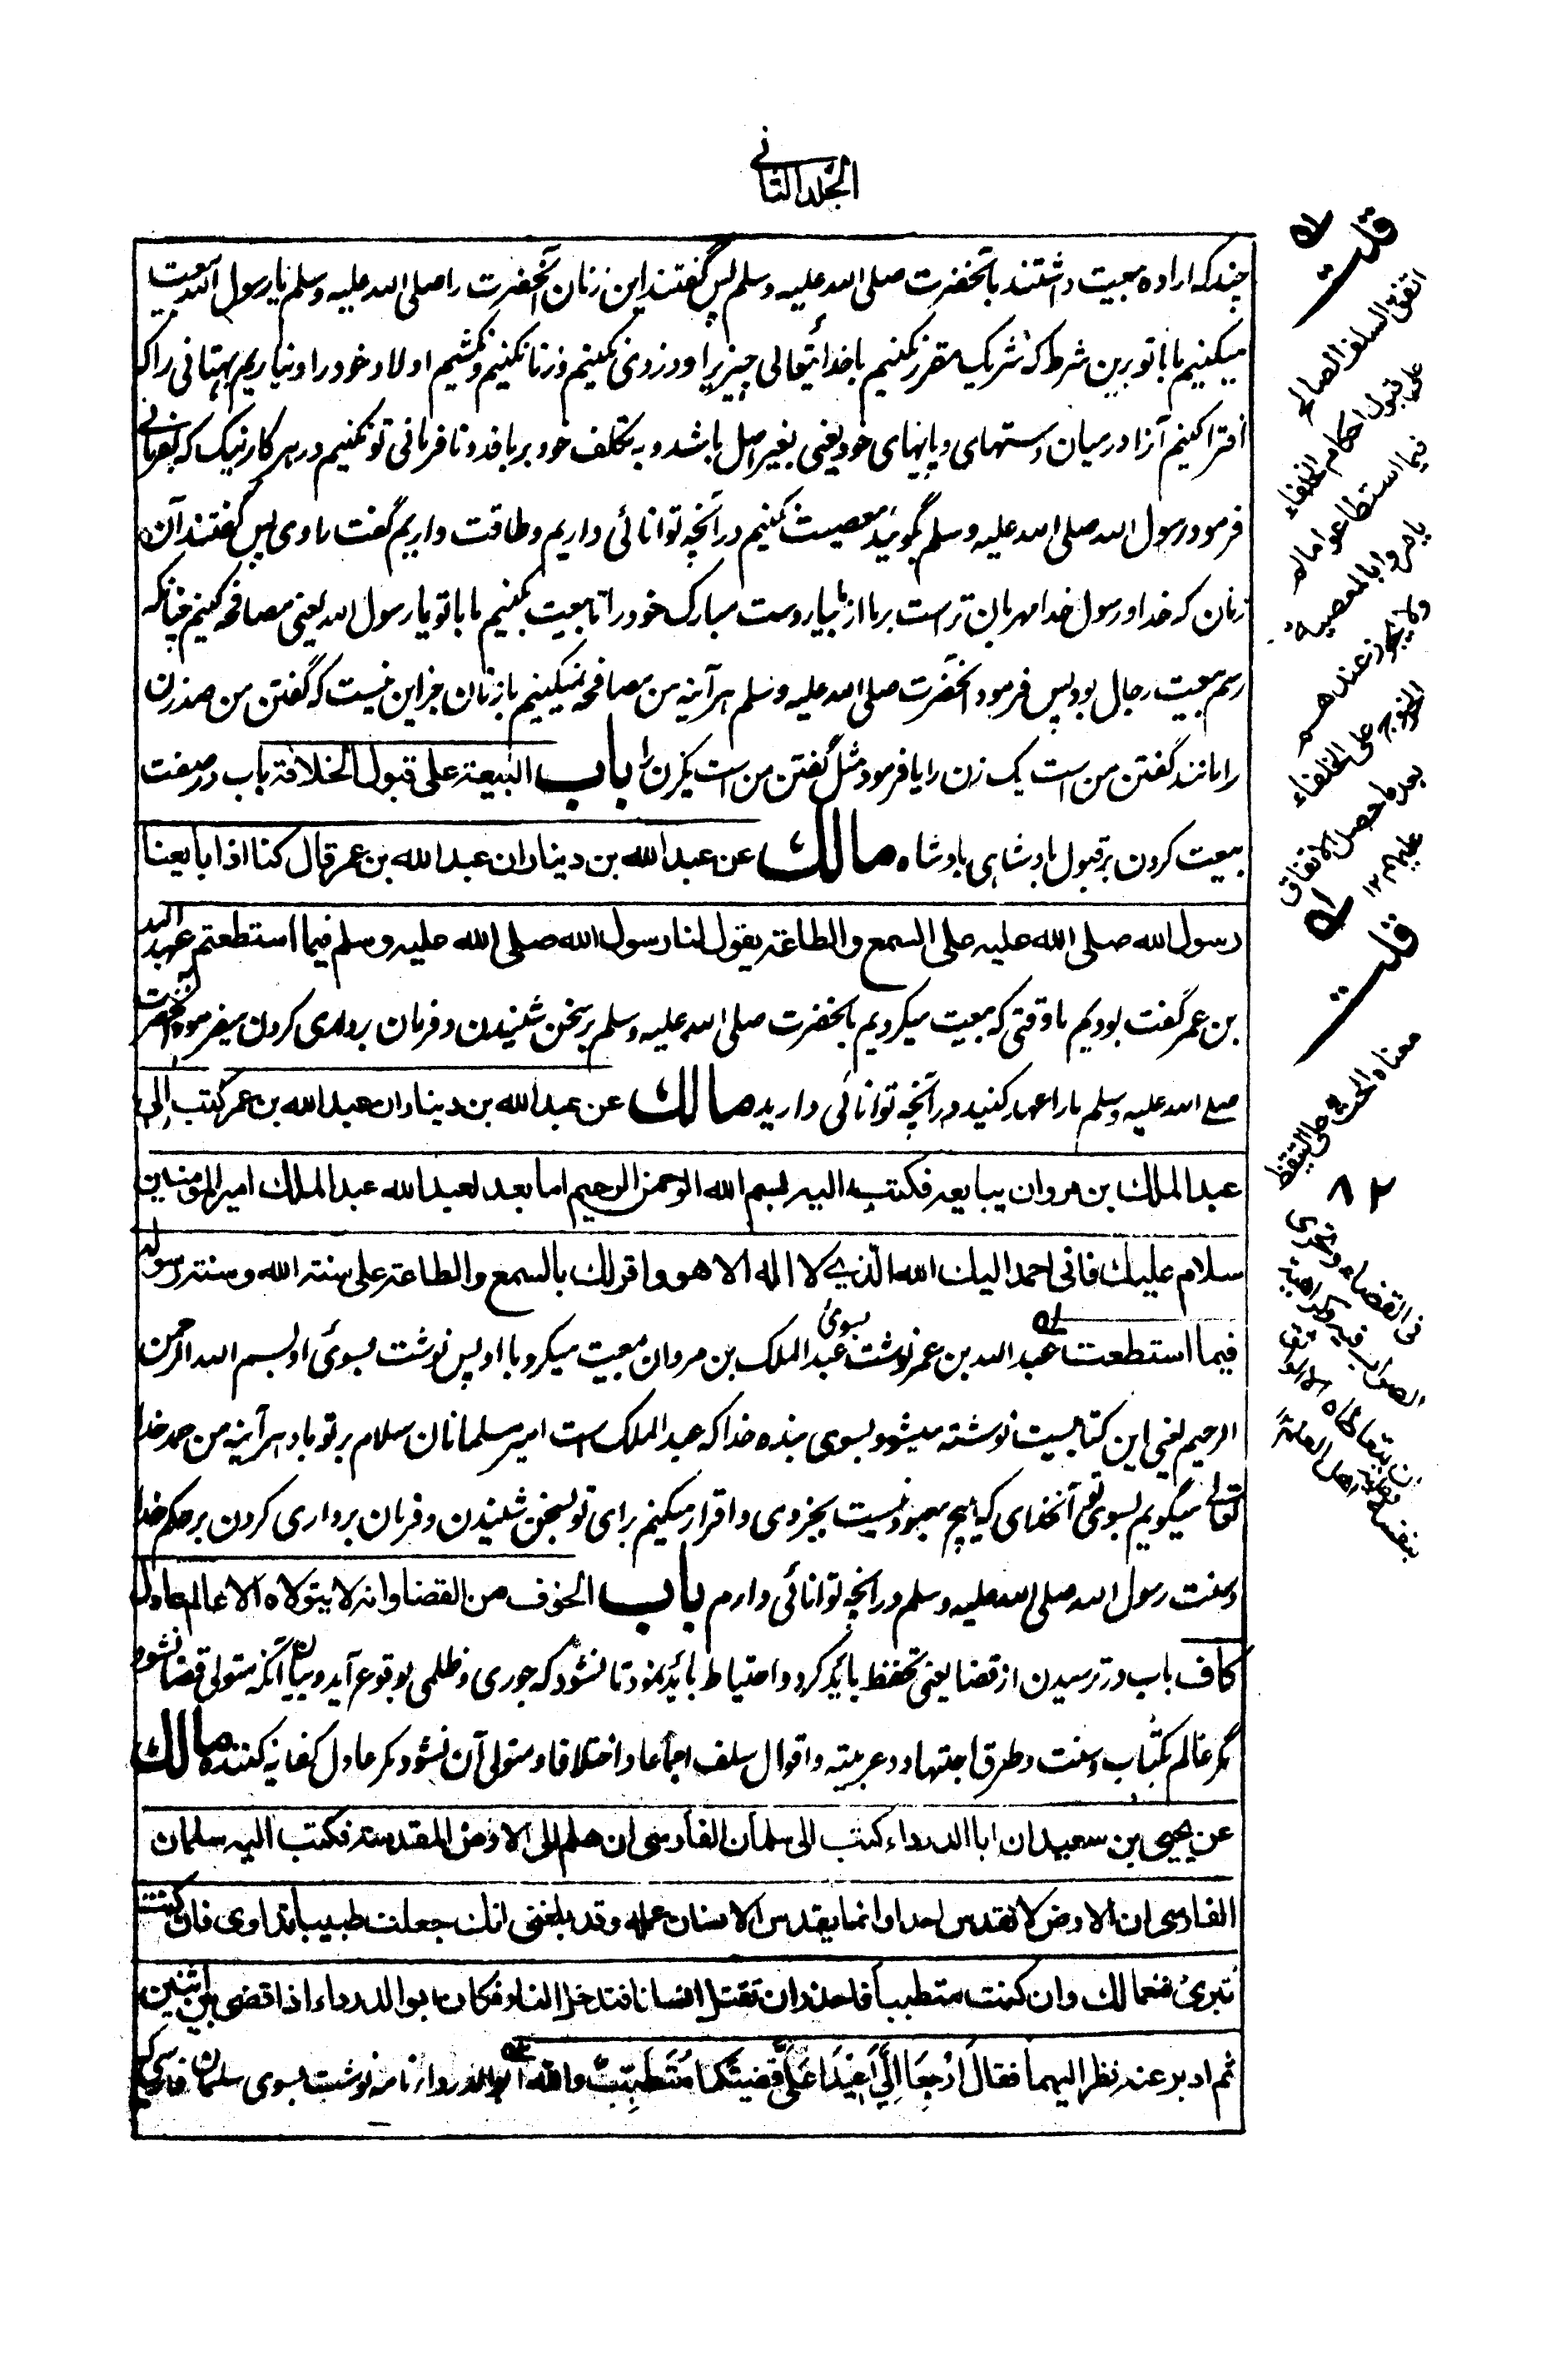 الجلد الثانی
چند که اراده بیعت داشتند بآنحضرت صلی الله علیه وسلم پس گفتند این زنان آنحضرت را صلی الله علیه وسلم یا رسول الله بیعت
میکنیم ما با تو برین شرط که شریک مقرر نکنیم با خدا یتعالی چیزیرا و دزدی نکنیم و زنا نکنیم و نکشیم اولاد خود را و نیاریم بهتانی را که
افترا کنیم آنرا درمیان دستهای و پایهای خود یعنی بغیر اصل باشد و به تکلف خود بر بافد و نافرمانی تو نکنیم در هر کار نیک که بفرمائی
فرمود رسول الله صلی الله علیه وسلم بگوئید معصیت نکنیم در آنچه توانائی داریم و طاقت داریم گفت راوی پس گفتند آن
زنان که خدا و رسول خدا مهربان تر است بر ما از ما بیار دست مبارک خود را تا بیعت بکنیم ما با تو یا رسول الله یعنی مصافحه کنیم چنانکه
رسم بیعت رجال بود پس فرمود آنحضرت صلی الله علیه وسلم هر آئینه من مصافحه نمیکنیم با زنان جز این نیست که گفتن من صد زن
را مانند گفتن من است یک زن را یا فرمود مثل گفتن من است یکزن را باب البیعة علی قبول الخلافة باب در صفت
بیعت کردن بر قبول بادشاهی بادشاه مالك عن عبد الله بن دینار ان عبد الله بن عمر قال کنا اذا بایعنا
رسول الله صلی الله علیه علی السمع والطاعة یقول لنا رسول الله صلی الله علیه وسلم فیما استطعتم عبد الله
بن عمر گفت بودیم ما وقتی که بیعت میکردیم بآنحضرت صلی الله علیه وسلم بر سخن شنیدن و فرمان برداری کردن میفرمود آنحضرت
صلی الله علیه وسلم ما را عهد کنید در آنچه توانائی دارید مالك عن عبد الله بن دینار ان عبد الله بن عمر کتب الی
عبد الملك بن مروان یبایعه فکتب الیه بسم الله الرحمن الرحیم اما بعد لعبد الله عبد الملك امیر المومنین
سلام علیك فانی احمد الیك الله الذی لا اله الا هو واقر لك بالسمع والطاعة علی سنة الله وسنة رسوله
فیما استطعت عبد الله بن عمر نوشت بسوئ عبد الملک بن مروان بیعت میکرد با او پس نوشت بسوئ او بسم الله الرحمن
الرحیم یعنی این کتابیست نوشته میشود بسوی بنده خدا که عبد الملک است امیر مسلمانان سلام بر تو باد هر آئینه من حمد خدا
تعالی میگویم بسوی تو آنخدای که هیچ معبود نیست بجز وی و اقرار میکنم برای تو بسخن شنیدن و فرمان برداری کردن بر حکم خدا
و سنت رسول الله صلی الله علیه وسلم در آنچه توانائی دارم باب الخوف من القضا وانه لا یتولاه الا عالم عادل
کاف باب در ترسیدن از قضا یعنی تحفظ باید کرد و احتیاط باید نمود تا نشود که جوری و ظلمی بوقوع آید و بیان آنکه متولی قضا نشود
مگر عالم بکتاب و سنت و طرق اجتهاد و عربیته و اقوال سلف اجماعا و اختلافا و متولی آن نشود مگر عادل کفایه کننده مالك
عن یحیی بن سعید ان ابا الدرداء کتب الی سلمان الفارسی ان هلم الی الارض المقدسة فکتب الیه سلمان
الفارسی ان الارض لا تقدس احدا وانما یقدس الانسان عمله وقد بلغنی انك جعلت طبیبا تداوی فان کنت
تبرئ فنعما لك وان کنت متطببا فاحذر ان تقتل انسانا فتدخل النار فکان ابو الدرداء اذا قضی بین اثنین
ثم ادبر عنه نظر الیهما فقال ارجعا الی اعیدا علی قضیتکما متطبب والله ابو الدرداء نامه نوشت بسوی سلمان فارسی که
قلت
اتفق السلف الصالح
علی قبول احکام الخلفاء
فیما استطاعوا ما لم
یامروا بالمعصیة
ولا یجوز عندهم
الخروج علی الخلفاء
بعد ما حصل الاتفاق
علیهم ١٢
قلت
معناه الحث علی التیقظ
فی القضاء وتحری
الصواب فیه وکراهیة